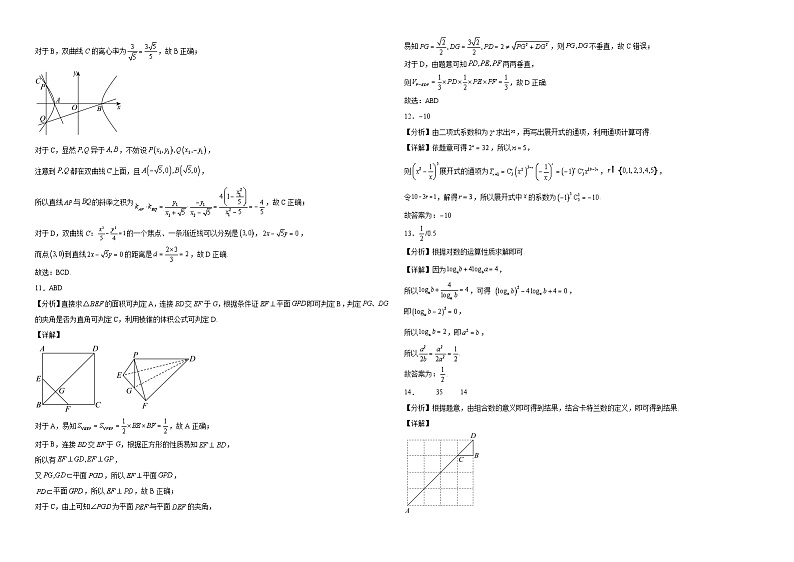 对于B，双曲线C的离心率为 3/√5 = 3√5/5，故B正确；
C P A O B Q x y
对于C，显然P,Q异于A,B，不妨设P(x₁,y₁),Q(x₁,-y₁)，
注意到P,Q都在双曲线C上面，且A(-√5,0),B(√5,0)，
所以直线AP与BQ的斜率之积为 k_AP·k_BQ = y₁/(x₁+√5)·(-y₁)/(x₁-√5) = 4(1-x₁²/5)/(x₁²-5) = -4/5，故C正确；
对于D，双曲线C：x²/5-y²/4=1的一个焦点、一条渐近线可以分别是(3,0)，2x-√5y=0，
而点(3,0)到直线2x-√5y=0的距离是d=2×3/3=2，故D正确.
故选：BCD.
11．ABD
【分析】直接求△BEF的面积可判定A，连接BD交EF于G，根据条件证EF⊥平面GPD即可判定B，判定PG、DG
的夹角是否为直角可判定C，利用棱锥的体积公式可判定D.
【详解】
A D E G B F C
P D E G F
对于A，易知S△BEF=S△PEF=1/2×BE×BF=1/2，故A正确；
对于B，连接BD交EF于G，根据正方形的性质易知EF⊥BD，
所以有EF⊥GD,EF⊥GP，
又PG,GD⊂平面PGD，所以EF⊥平面GPD，
PD⊂平面GPD，所以EF⊥PD，故B正确；
对于C，由上可知∠PGD为平面PEF与平面DEF的夹角，
易知PG=√2/2,DG=3√2/2,PD=2≠√(PG²+DG²)，则PG不垂直，故C错误；
对于D，由题意可知PD,PE,PF两两垂直，
则V_P-DEF=1/3×PD×1/2×PE×PF=1/3，故D正确.
故选：ABD
12．-10
【分析】由二项式系数和为2ⁿ求出n，再写出展开式的通项，利用通项计算可得.
【详解】依题意可得2ⁿ=32，所以n=5，
则(x²-1/x)⁵展开式的通项为T_{r+1}=C₅ʳ(x²)^{5-r}(-1/x)ʳ=(-1)ʳC₅ʳx^{10-3r}，r∈{0,1,2,3,4,5}，
令10-3r=1，解得r=3，所以展开式中x的系数为(-1)³C₅³=-10.
故答案为：-10
13．1/2/0.5
【分析】根据对数的运算性质求解即可.
【详解】因为log_a b+4log_b a=4，
所以log_a b+4/log_a b=4，可得(log_a b)²-4log_a b+4=0，
即(log_a b-2)²=0，
所以log_a b=2，即a²=b，
所以a²/2b=a²/2a²=1/2.
故答案为：1/2
14． 35 14
【分析】根据题意，由组合数的意义即可得到结果，结合卡特兰数的定义，即可得到结果.
【详解】
D C B A